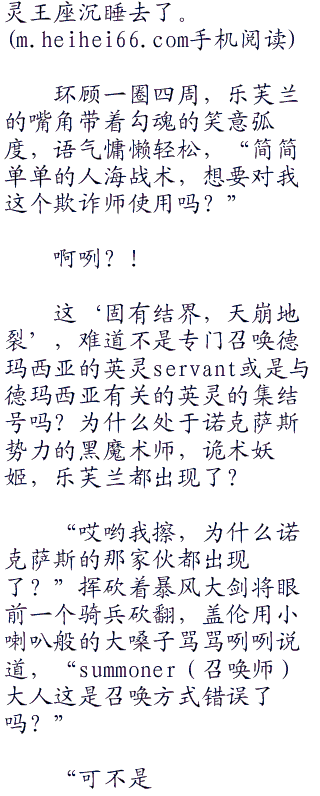 灵王座沉睡去了。
(m.heihei66.com手机阅读)
环顾一圈四周，乐芙兰
的嘴角带着勾魂的笑意弧
度，语气慵懒轻松，“简简
单单的人海战术，想要对我
这个欺诈师使用吗？”
啊咧？！
这‘固有结界，天崩地
裂’，难道不是专门召唤德
玛西亚的英灵servant或是与
德玛西亚有关的英灵的集结
号吗？为什么处于诺克萨斯
势力的黑魔术师，诡术妖
姬，乐芙兰都出现了？
“哎哟我擦，为什么诺
克萨斯的那家伙都出现
了？”挥砍着暴风大剑将眼
前一个骑兵砍翻，盖伦用小
喇叭般的大嗓子骂骂咧咧说
道，“summoner（召唤师）
大人这是召唤方式错误了
吗？”
“可不是